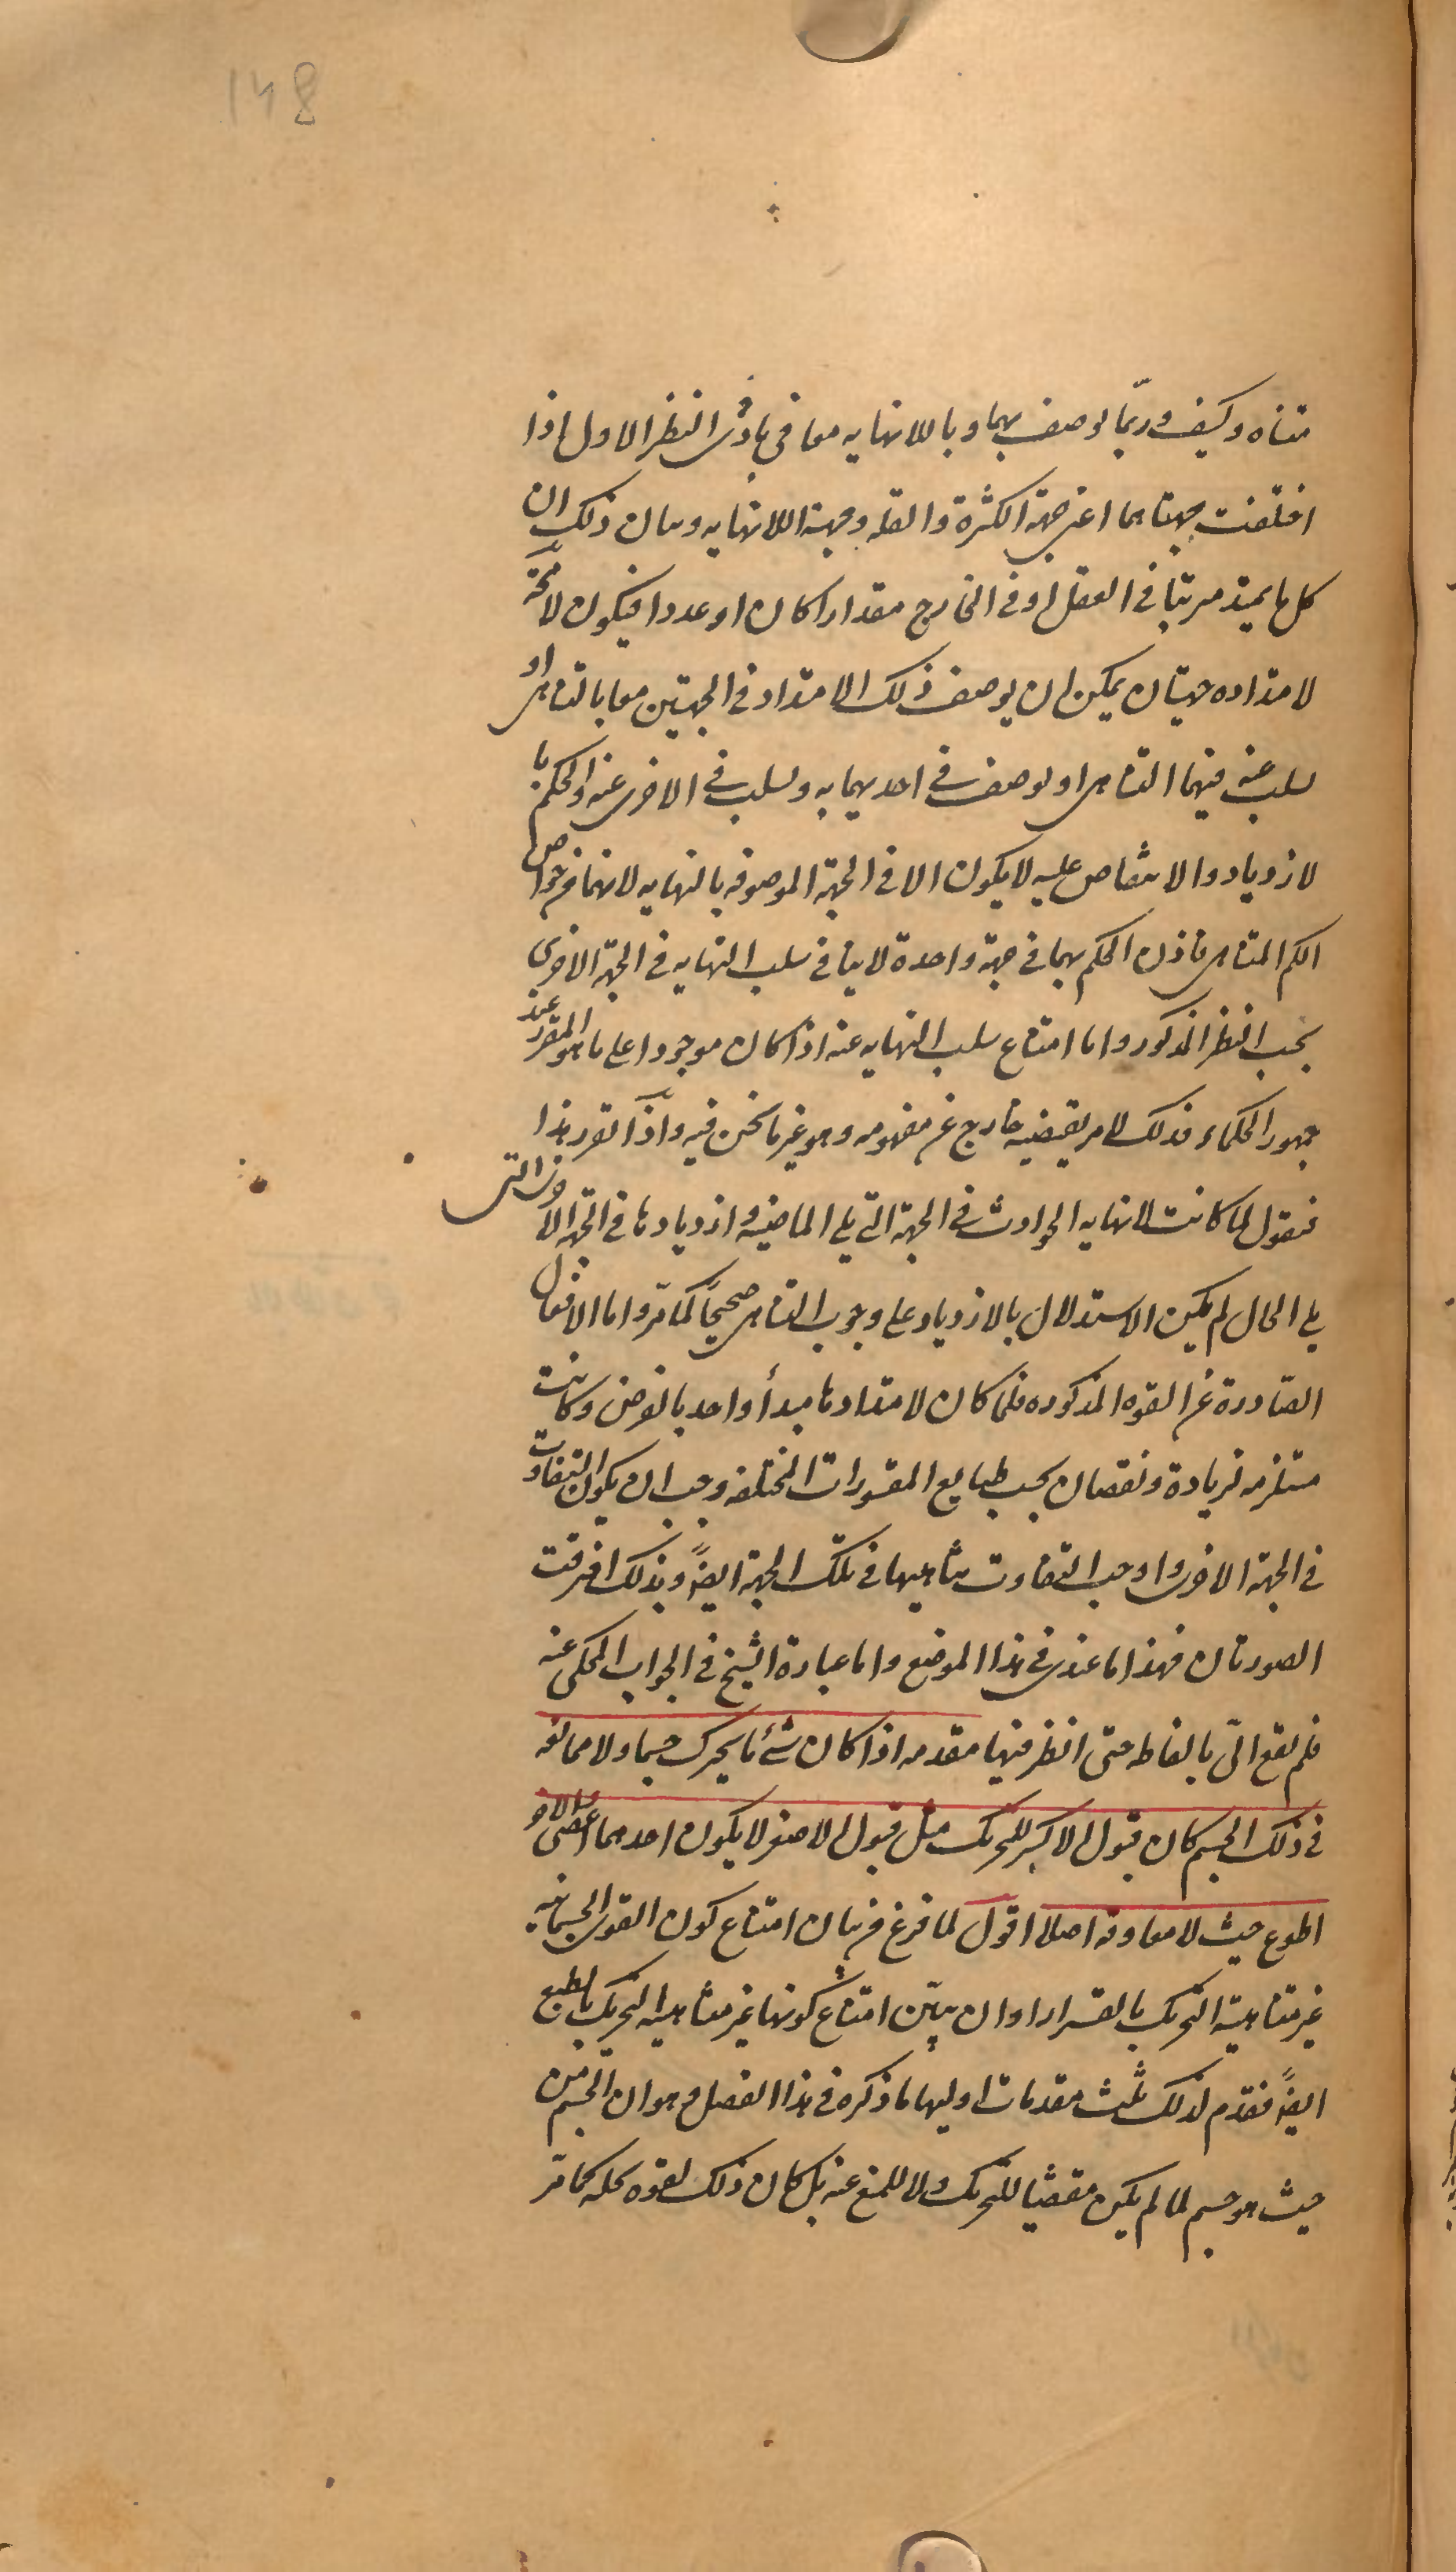 148
متناه وكيف وربّما يوصف بهما وباللانهايه معا فى بادى النظر الاول اذا
اختلفت جهتاهما اعنى جهة الكثرة والقله وجهة اللانهايه وبيان ذلك ان
كل ما يمتد مرتبا فى العقل او فى الخارج مقدارا كان او عددا فيكون لا محة
لامتداده جهتان يمكن ان يوصف ذلك الامتداد فى الجهتين معا بالتناهى او
يسلب عنه فيهما التناهى او يوصف فى احديهما به ويسلب فى الاخرى عنه والحكم با
لازدياد والانتقاص عليه لا يكون الا فى الجهة الموصوفه بالنهايه لانهما من خواص
الكم المتناهى فاذن الحكم بهما فى جهة واحدة لا ينافى سلب النهايه فى الجهة الاخرى
بحسب النظر المذكور واما امتناع سلب النهايه عنه اذا كان موجودا على ما هو المقرر عند
جمهور الحكماء فذلك لامر يقتضيه خارج عن مفهومه وهو غير ما نحن فيه واذا تقرر هذا
فنقول لما كانت لانهايه الحوادث فى الجهة التى يلى الماضيه وازديادها فى الجهة الاخرى التى
يلى الحال لم يكن الاستدلال بالازدياد على وجوب التناهى صحيحًا كما مرّ واما الافعال
الصّادرة عن القوه المذكوره فلما كان لامتدادها مبدأ واحد بالفرض وكانت
مستلزمه لزيادة ونقصان بحسب طبايع المقسورات المختلفه وجب ان يكون التفاوت
فى الجهة الاخرى واوجب التفاوت تناهيها فى تلك الجهة ايضًا وبذلك افترقت
الصورتان فهذا ما عندى فى هذا الموضع واما عبارة الشيخ فى الجواب المحكى عنه
فلم يقع الىّ بالفاظه حتى انظر فيها مقدمه اذا كان شئ ما يحرك جسما ولا ممانعه
فى ذلك الجسم كان قبول الاكبر للتحريك مثل قبول الاصغر لا يكون احدهما اعصى والاخر
اطوع حيث لا معاوقه اصلا اقول لما فرغ من بيان امتناع كون القوى الجسمانيه
غير متناهية التحريك بالقسر اراد ان يبيّن امتناع كونها غير متناهيه التحريك بالطبع
ايضًا فقدّم لذلك ثلث مقدمات اوليها ما ذكره فى هذا الفصل وهو ان الجسم من
حيث هو جسم لما لم يكن مقتضيا للتحريك ولا للمنع عنه بل كان ذلك لقوه تحله كما مرّ